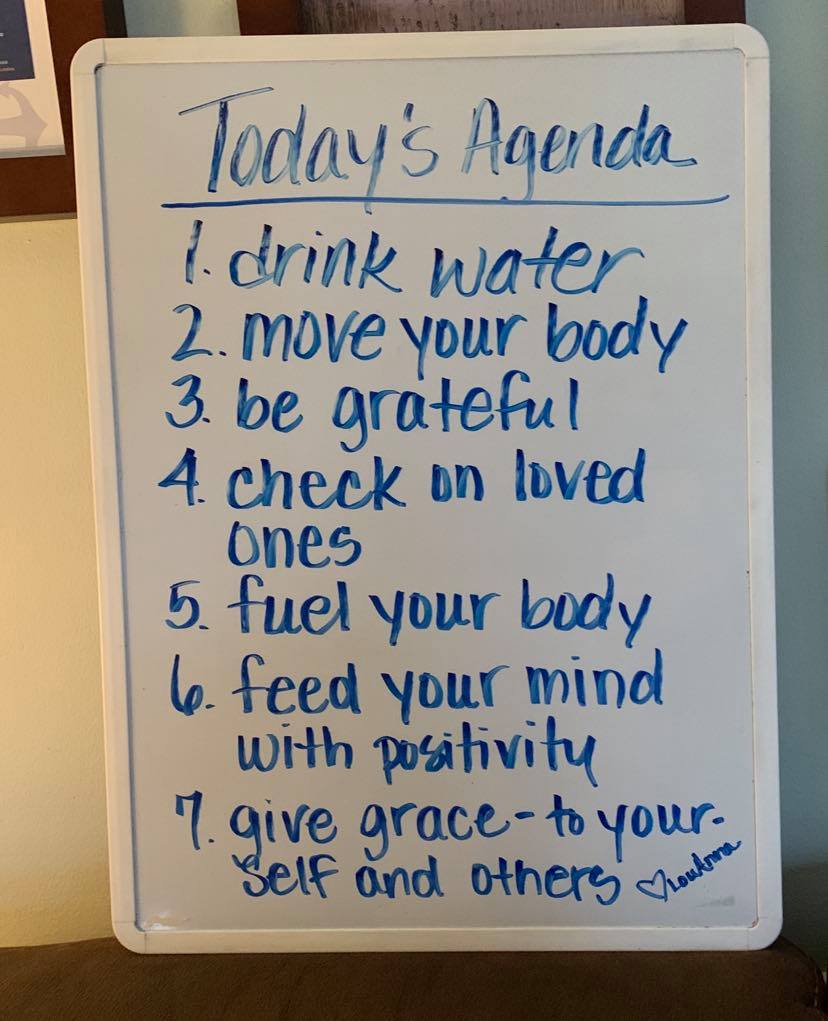 Today's Agenda
1. drink water
2. move your body
3. be grateful
4. check on loved
ones
5. fuel your body
6. feed your mind
with positivity
7. give grace - to your-
self and others ♡LouAnna